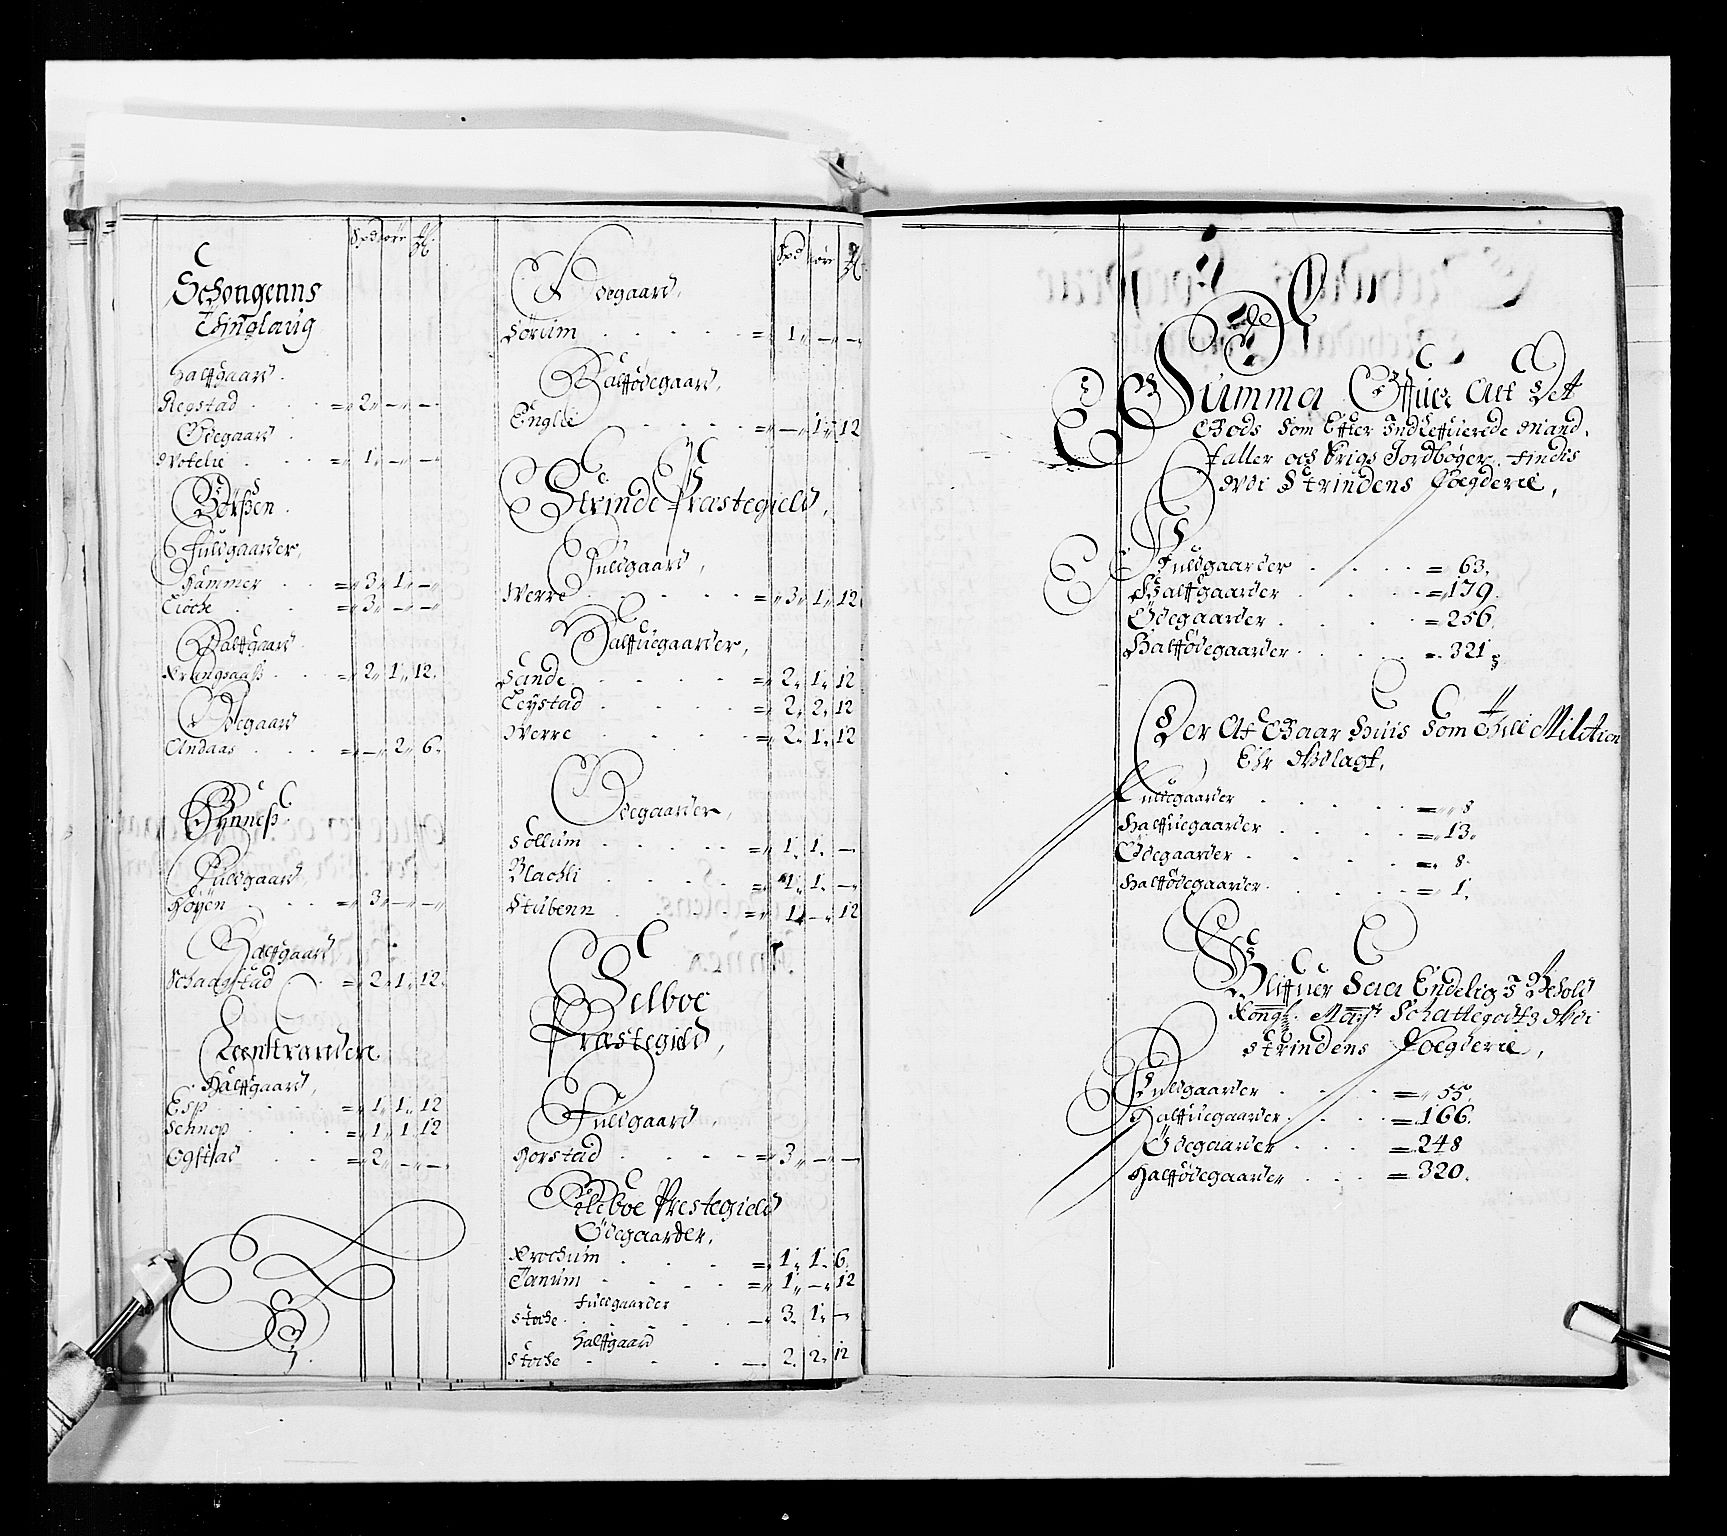 Spd ört
Schongenns
Thinglaug
Halffgaard.
Regstad = 2 – –
Ödegaard.
= 1 – –
Börßen.
Fuldgaarder,
Hammer = 3 1 –
= 3 – –
Halffgaard
= 2 1 12.
Ödegaard
Andaas = – 2 6.
Bynneß.
Fuldgaard,
Höyen = 3 – –
Halffgaard
Schaagstad = 2 1 12
Leenstranden
Halffgaard,
Esp = 1 1 12
Schnop = 1 1 12
Ogstad = 2 – –
Spd ört
Ödegaard,
Sörum = 1 – –
Halffödegaard,
Englie = – 1 12
Strinde Præstegield,
Fuldgaard,
Werre = 3 1 12
Halffuegaarder,
Sande = 2 1 12
Leystad = 2 2 12
Werre = 2 1 12
Ödegaarder,
Sollum = 1 1 –
Blachli = 1 1 –
Stubenn = 1 – 12
Selboe
Præstegield,
Fuldgaard,
Horstad = 3 – –
Kileboe Prestegield
Ödegaarder,
Krochum = 1 1 6
Tanum = 1 – 12
Fuldgaarder
Stoche – 3 1 –
Halffgaard
Stoche – 2 2 12
Summa Offuer Alt Det
Gods Som Efter Indleffuerede Mand-
taller och Krigs Jordböger findis
Wdi Strindens Foegderie,
Fuldgaarder = 63.
Halffgaarder = 179.
Ödegaarder = 256.
Halffödegaarder = 321
Der Af Gaar Huis Som Thill Militien
Ehr Wdlagt,
Fuldgaarder = 8
Halffuegaarder = 13.
Ödegaarder = 8.
Halffödegaarder = 1.
Bliffuer Saa Endelig I Behold
Kongl. Mayts. Schattegodtz Wdi
Strindens Foegderie,
Fuldgaarder = 55.
Halffuegaarder = 166.
Ödegaarder = 248
Halffödegaarder = 320.